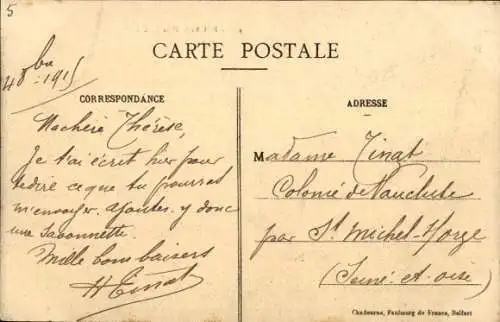 5
CARTE POSTALE
4 8bre 1915
CORRESPONDANCE
ADRESSE
Machère Thérèse,
Je t'ai écrit hier pour
tedire ceque tu pourras
m'envoyer. ajoutes. y donc
une savonnette.
Mille bons baisers
H Tinat
Madame Tinat
Colonie de Vaucluse
par St Michel-s/orge
(Seine-et-oise)
Chadourne, Faubourg de France, Belfort